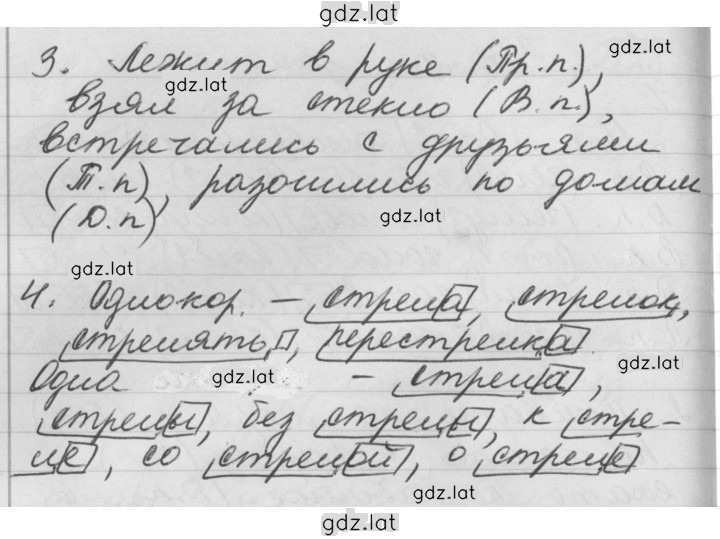 gdz.lat
3. Лежит в руке (Пр.п.),
gdz.lat
gdz.lat
взял за стекло (В.п.),
встречались с друзьями
(Т.п), разошлись по домам
(Д.п)
gdz.lat
gdz.lat
4. Однокор. – стрела, стрелок,
стрелять, перестрелка.
gdz.lat
Одна – стрела,
gdz.lat
стрелы, без стрелы, к стре-
ле, со стрелой, о стреле
gdz.lat
gdz.lat